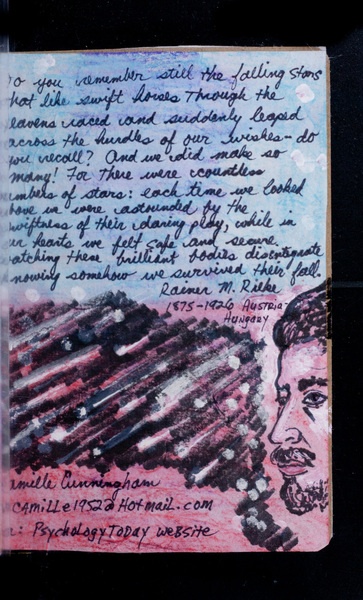 o you remember still the falling stars
hat like swift horses through the
eavens raced and suddenly leaped
across the hurdles of our wishes - do
you recall? And we did make so
many! For there were countless
umbers of stars: each time we looked
bove us were astounded by the
wiftness of their daring play, while in
ur hearts we felt safe and secure
atching these brilliant bodies disentegrate
nowing somehow we survived their fall.
Rainer M. Rilke
1875-1926 Austria-
Hungary
amille Cunningham
CAMille1952@Hotmail.com
: Psychology Today website